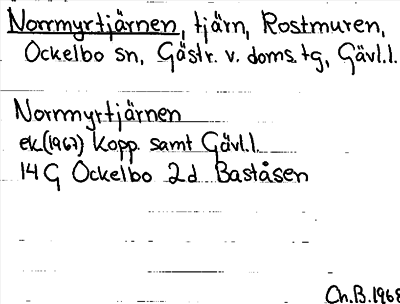 Norrmyrtjärnen, tjärn, Rostmuren,
Ockelbo sn, Gästr. v. doms. tg, Gävl.l.
Norrmyrtjärnen
ek.(1967) Kopp. samt Gävl.l.
14 G Ockelbo 2 d Baståsen
Ch.B.1968